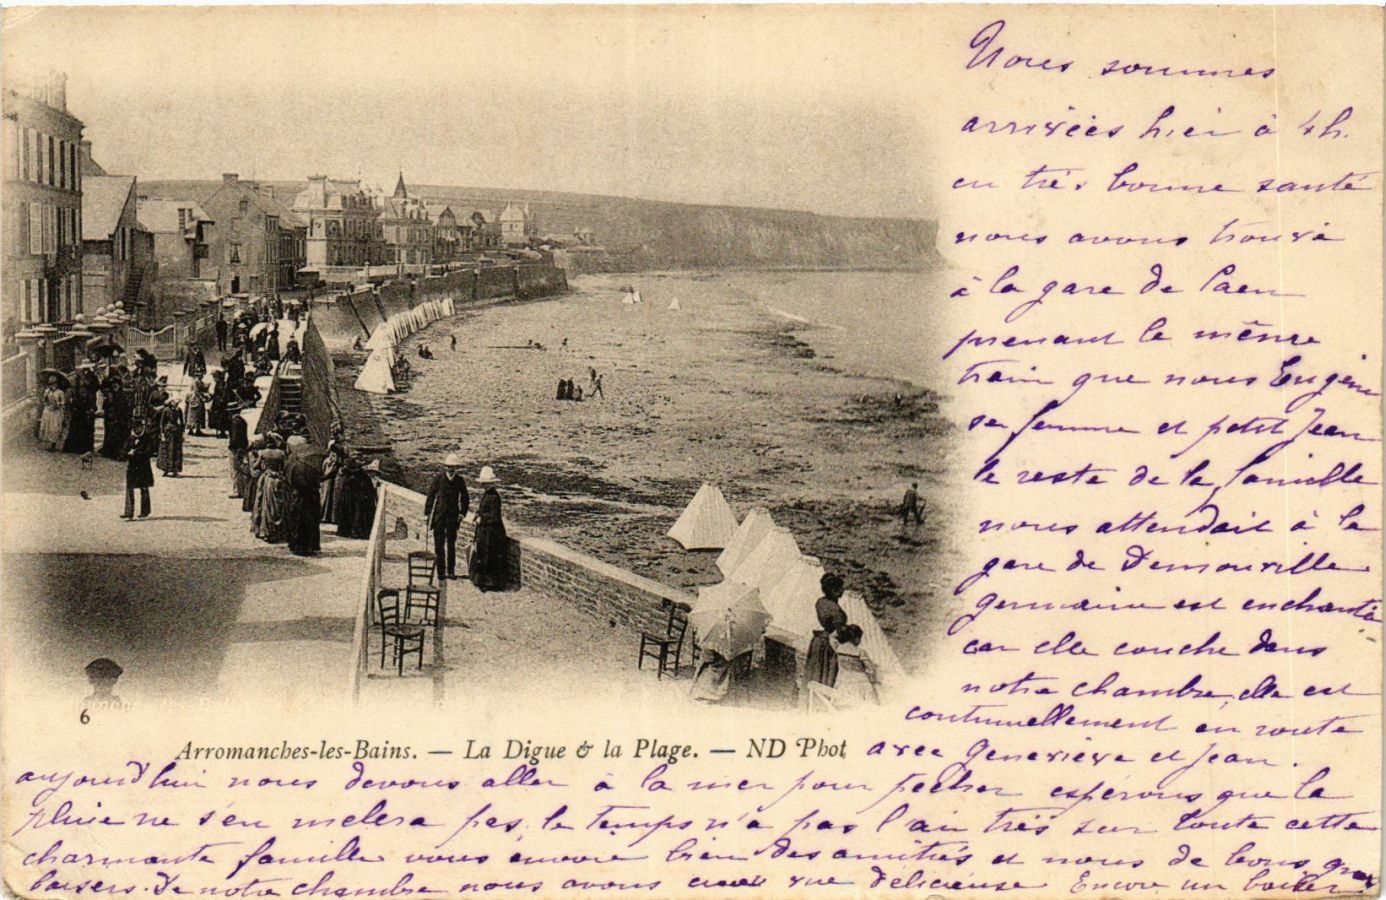 Nous sommes
arrivées hier à 4h.
en très bonne santé
nous avons trouvé
à la gare de Caen
prenant le même
train que nous Eugène
sa femme et petit Jean
le reste de la famille
nous attendait à la
gare de
germaine est enchantée
car elle couche dans
notre chambre, elle est
continuellement en route
avec Geneviève et Jean.
6
Arromanches-les-Bains. — La Digue & la Plage. — ND Phot
aujourd'hui nous devons aller à la mer pour pêcher espérons que la
pluie ne s'en mêlera pas, le temps n'a pas l'air très sur toute cette
charmante famille vous envoie bien des amitiés et nous de bons gros
baisers. De notre chambre nous avons une vue délicieuse. Encore un baiser.